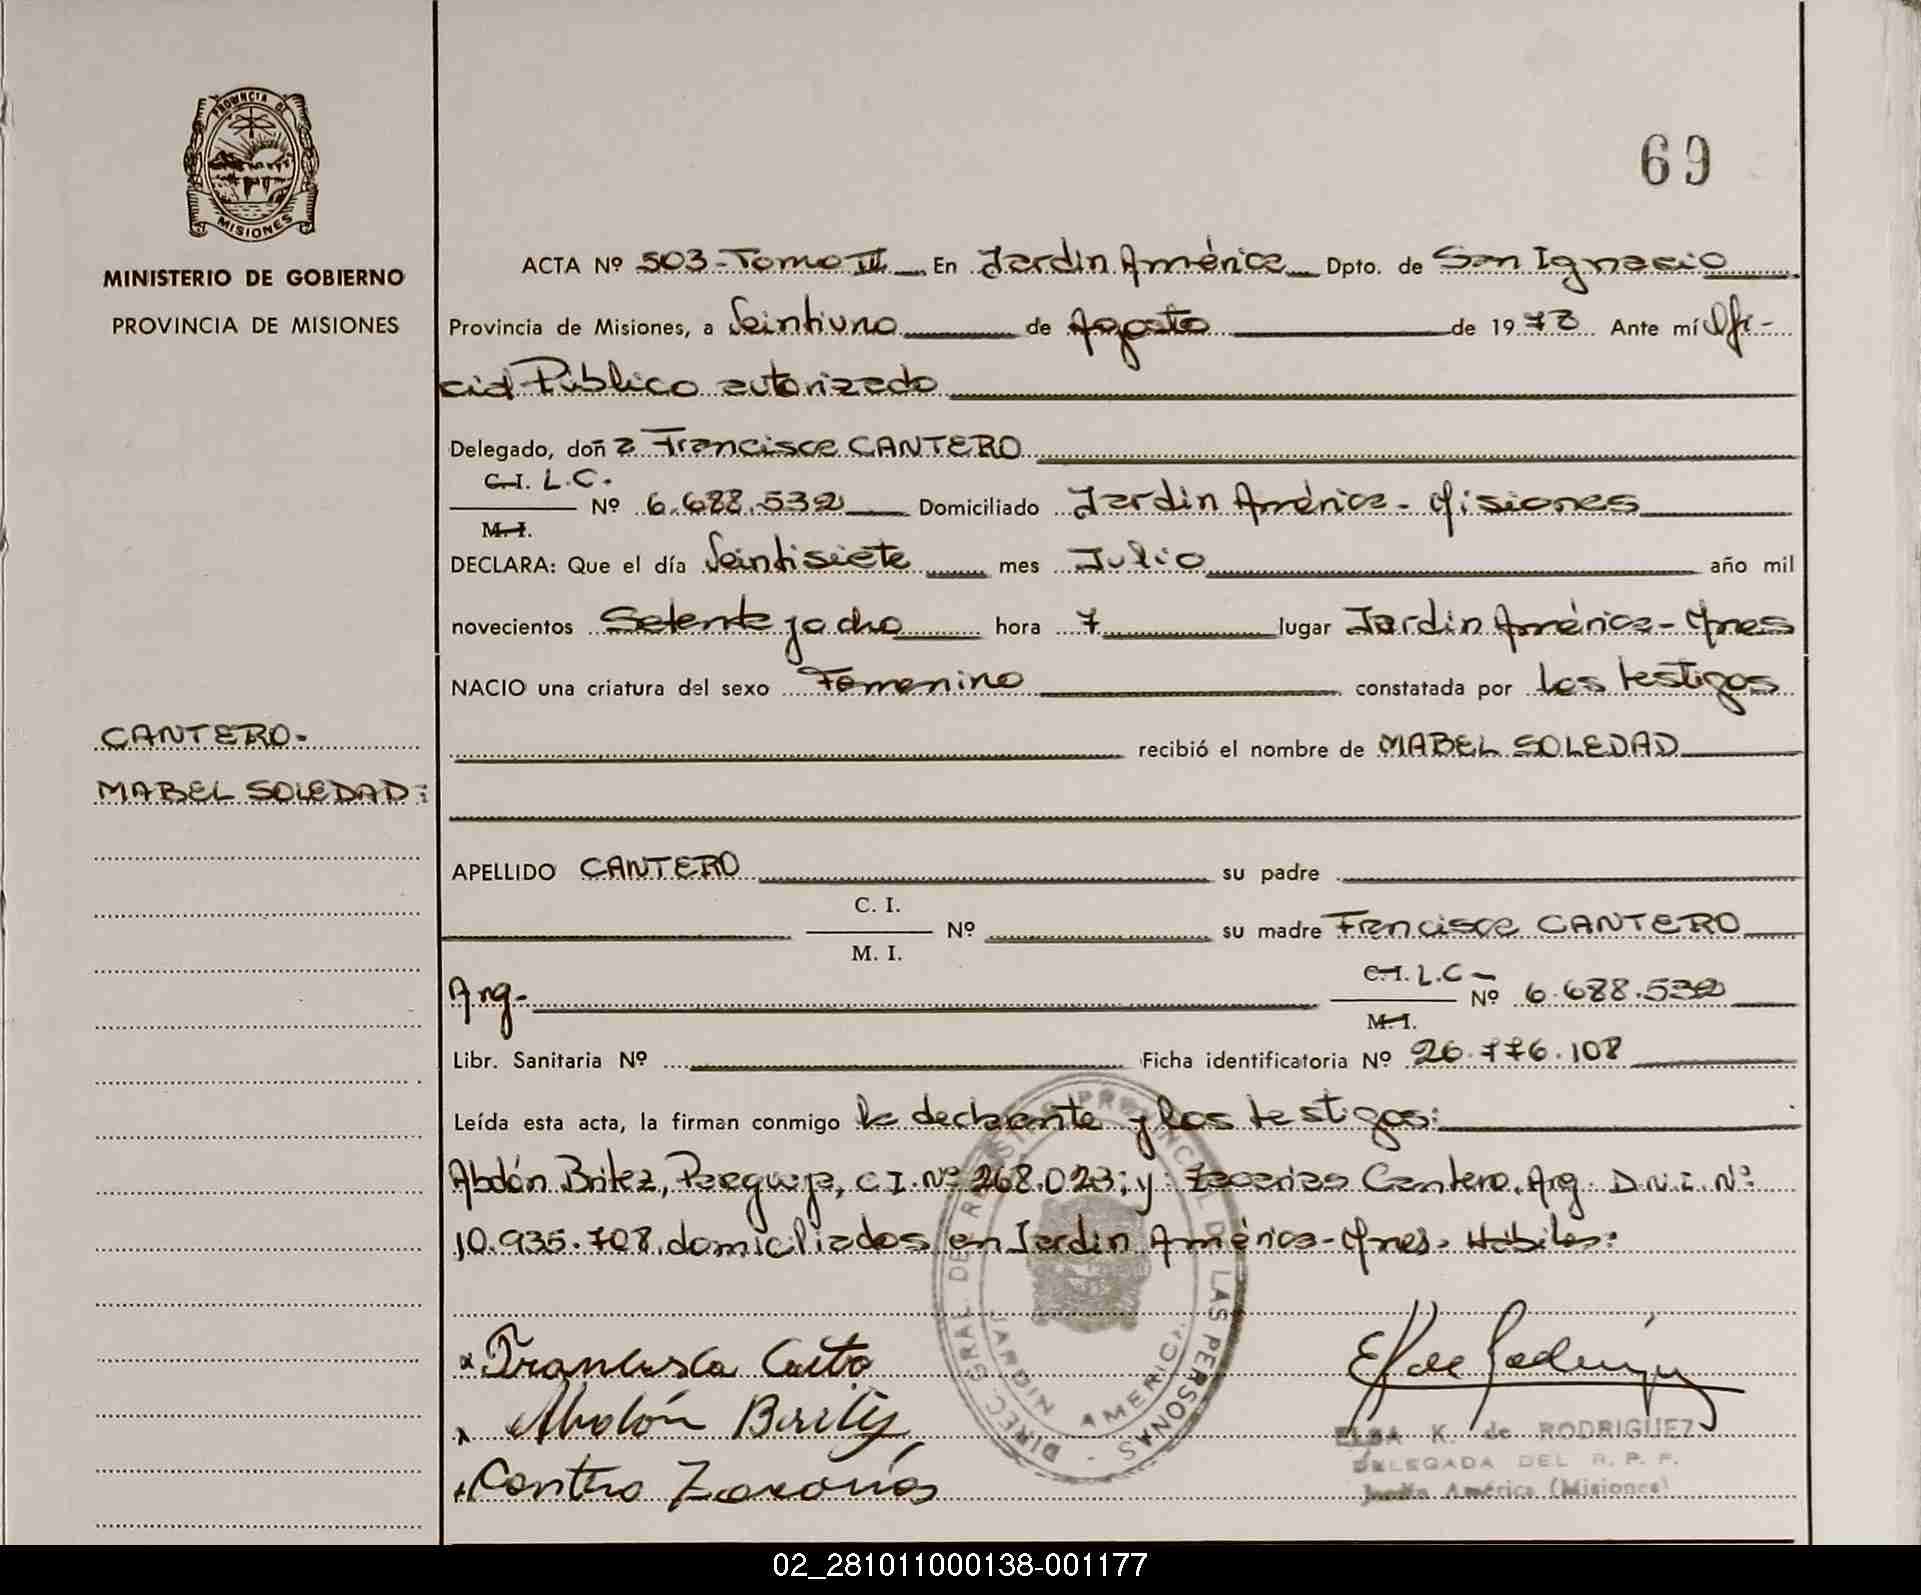 PROVINCIA DE
MISIONES
MINISTERIO DE GOBIERNO
PROVINCIA DE MISIONES
69
ACTA Nº 503-Tomo III En Jardin América Dpto. de San Ignacio
Provincia de Misiones, a Veintiuno de Agosto de 1978 Ante mí Ofi-
cial Público autorizado
Delegado, doñ a Francisca CANTERO
C.I. L.C.
Nº 6.688.532 Domiciliado Jardin América - Misiones
M.I.
DECLARA: Que el día Veintisiete mes Julio año mil
novecientos Setenta y ocho hora 7 lugar Jardin América - Mnes
NACIO una criatura del sexo Femenino constatada por los testigos
CANTERO.
recibió el nombre de MABEL SOLEDAD
MABEL SOLEDAD:
APELLIDO CANTERO su padre
C. I.
Nº su madre Frncisca CANTERO
M. I.
Arg. C.I. L.C. Nº 6.688.532
M.I.
Libr. Sanitaria Nº Ficha identificatoria Nº 26.776.108
Leída esta acta, la firman conmigo la declarante y los testigos:
Abdón Britez, Paraguaya, C.I. Nº 268.023; y: Zacarias Cantero, Arg. D.N.I. Nº
10.935.708 domiciliados en Jardin América - Mnes. Hábiles:
DIREC. GRAL. DE REGISTRO PROVINCIAL DE LAS PERSONAS
JARDIN AMERICA
Francisca
Abdón
Cantero Zacarías
ELSA K. de RODRIGUEZ
DELEGADA DEL R. P. P.
Jardín América (Misiones)
02_281011000138-001177